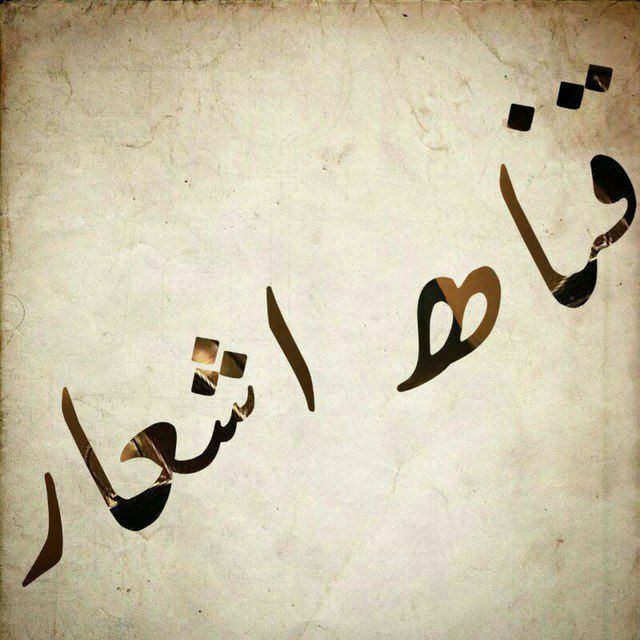 قناه اشعار